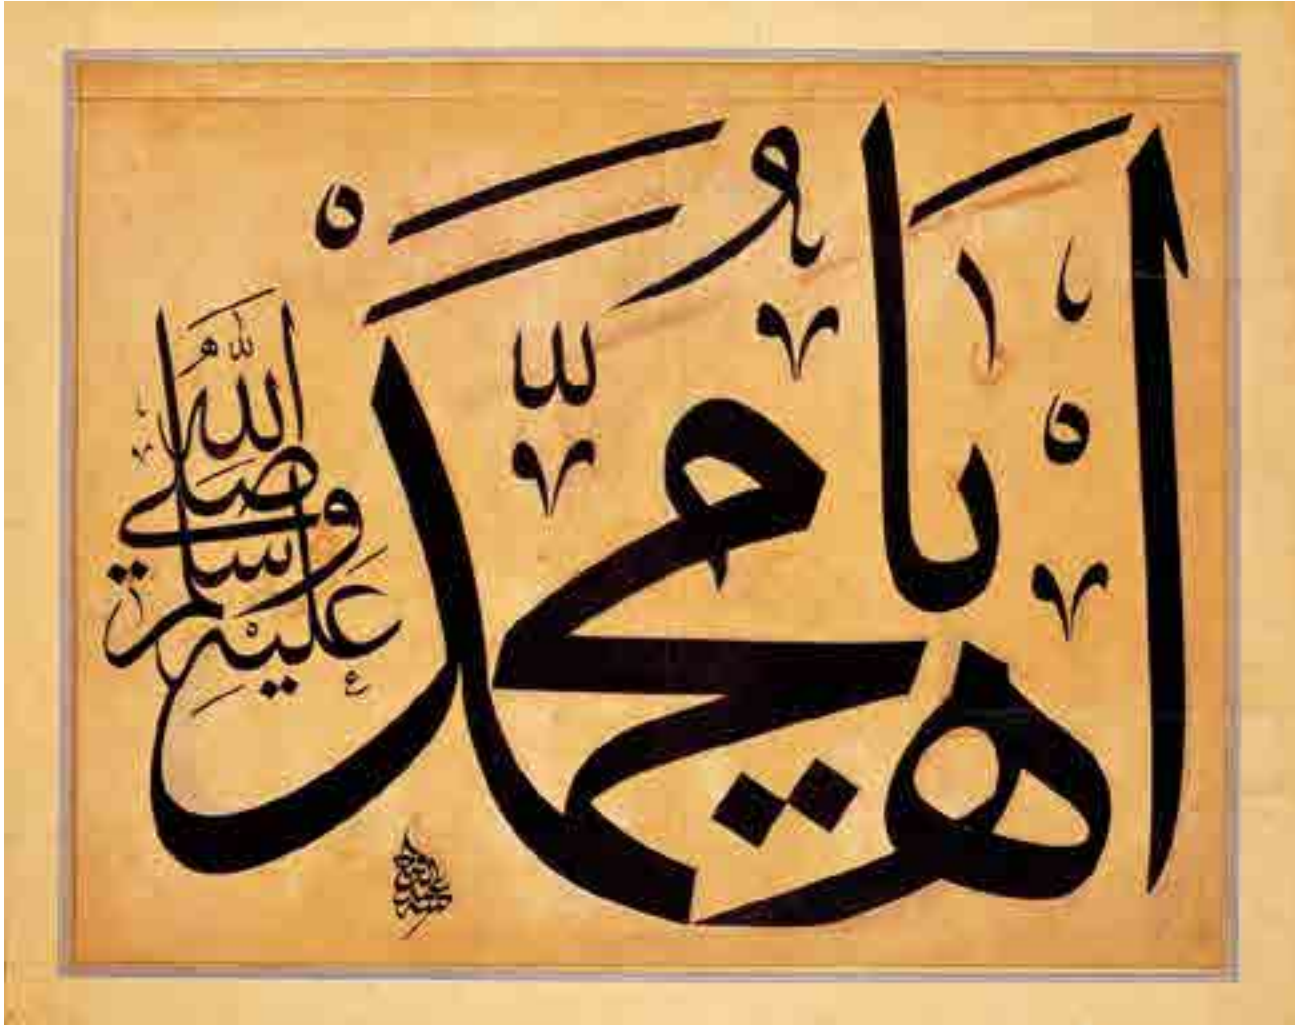 آه يا محمد
صلى الله عليه وسلم